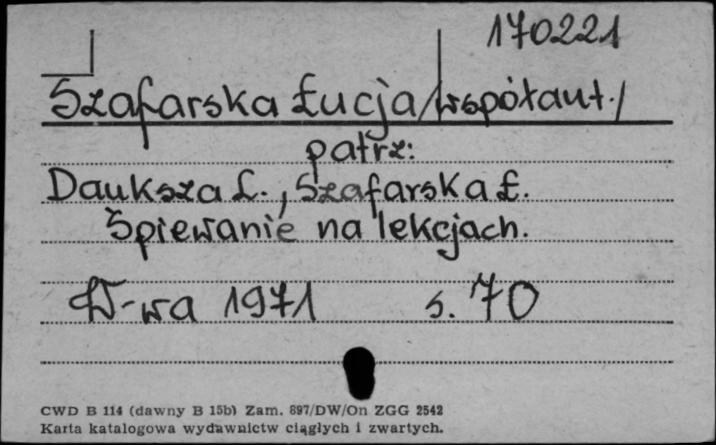 170221
Szafarska Łucja /współaut./
patrz:
Dauksza L., Szafarska Ł.
Śpiewanie na lekcjach.
W-wa 1971 s. 70
CWD B 114 (dawny B 15b) Zam. 897/DW/On ZGG 2542
Karta katalogowa wydawnictw ciągłych i zwartych.